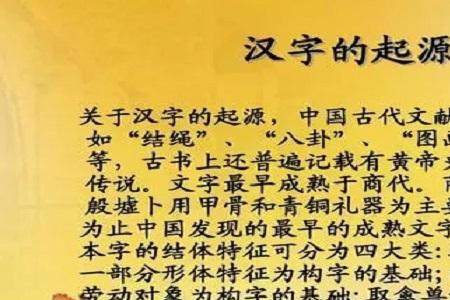 汉字的起源
关于汉字的起源，中国古代文献
如“结绳”、“八卦”、“图
等，古书上还普遍记载有黄帝
传说。文字最早成熟于商代。
殷墟卜用甲骨和青铜礼器为主
为止中国发现的最早的成熟文
本字的结体特征可分为四大类：
一部分形体特征为构字的基础；
劳动对象为构字的基础；取禽兽